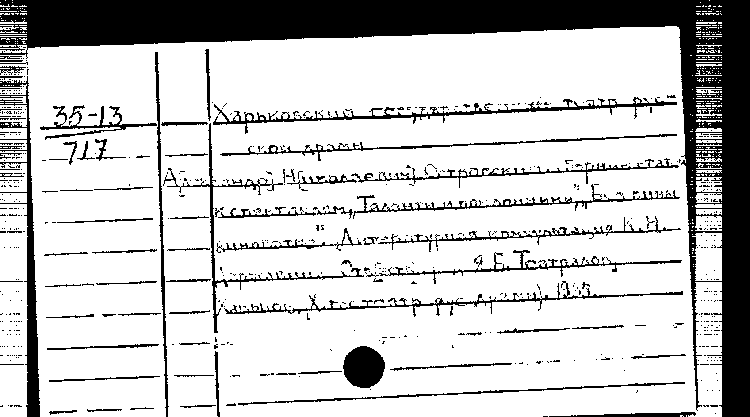 35-13
717
Харьковский государственный театр рус-
ской драмы
А[лександр] Н[иколаевич] Островский. Сборник статей
к спектаклям „Таланты и поклонники", „Без вины
виноватые". Литературная консультация К. Н.
Державина. Отв. ред. Я. Б. Театралов.
Харьков, [Х. гос. театр рус. драмы], 1935.